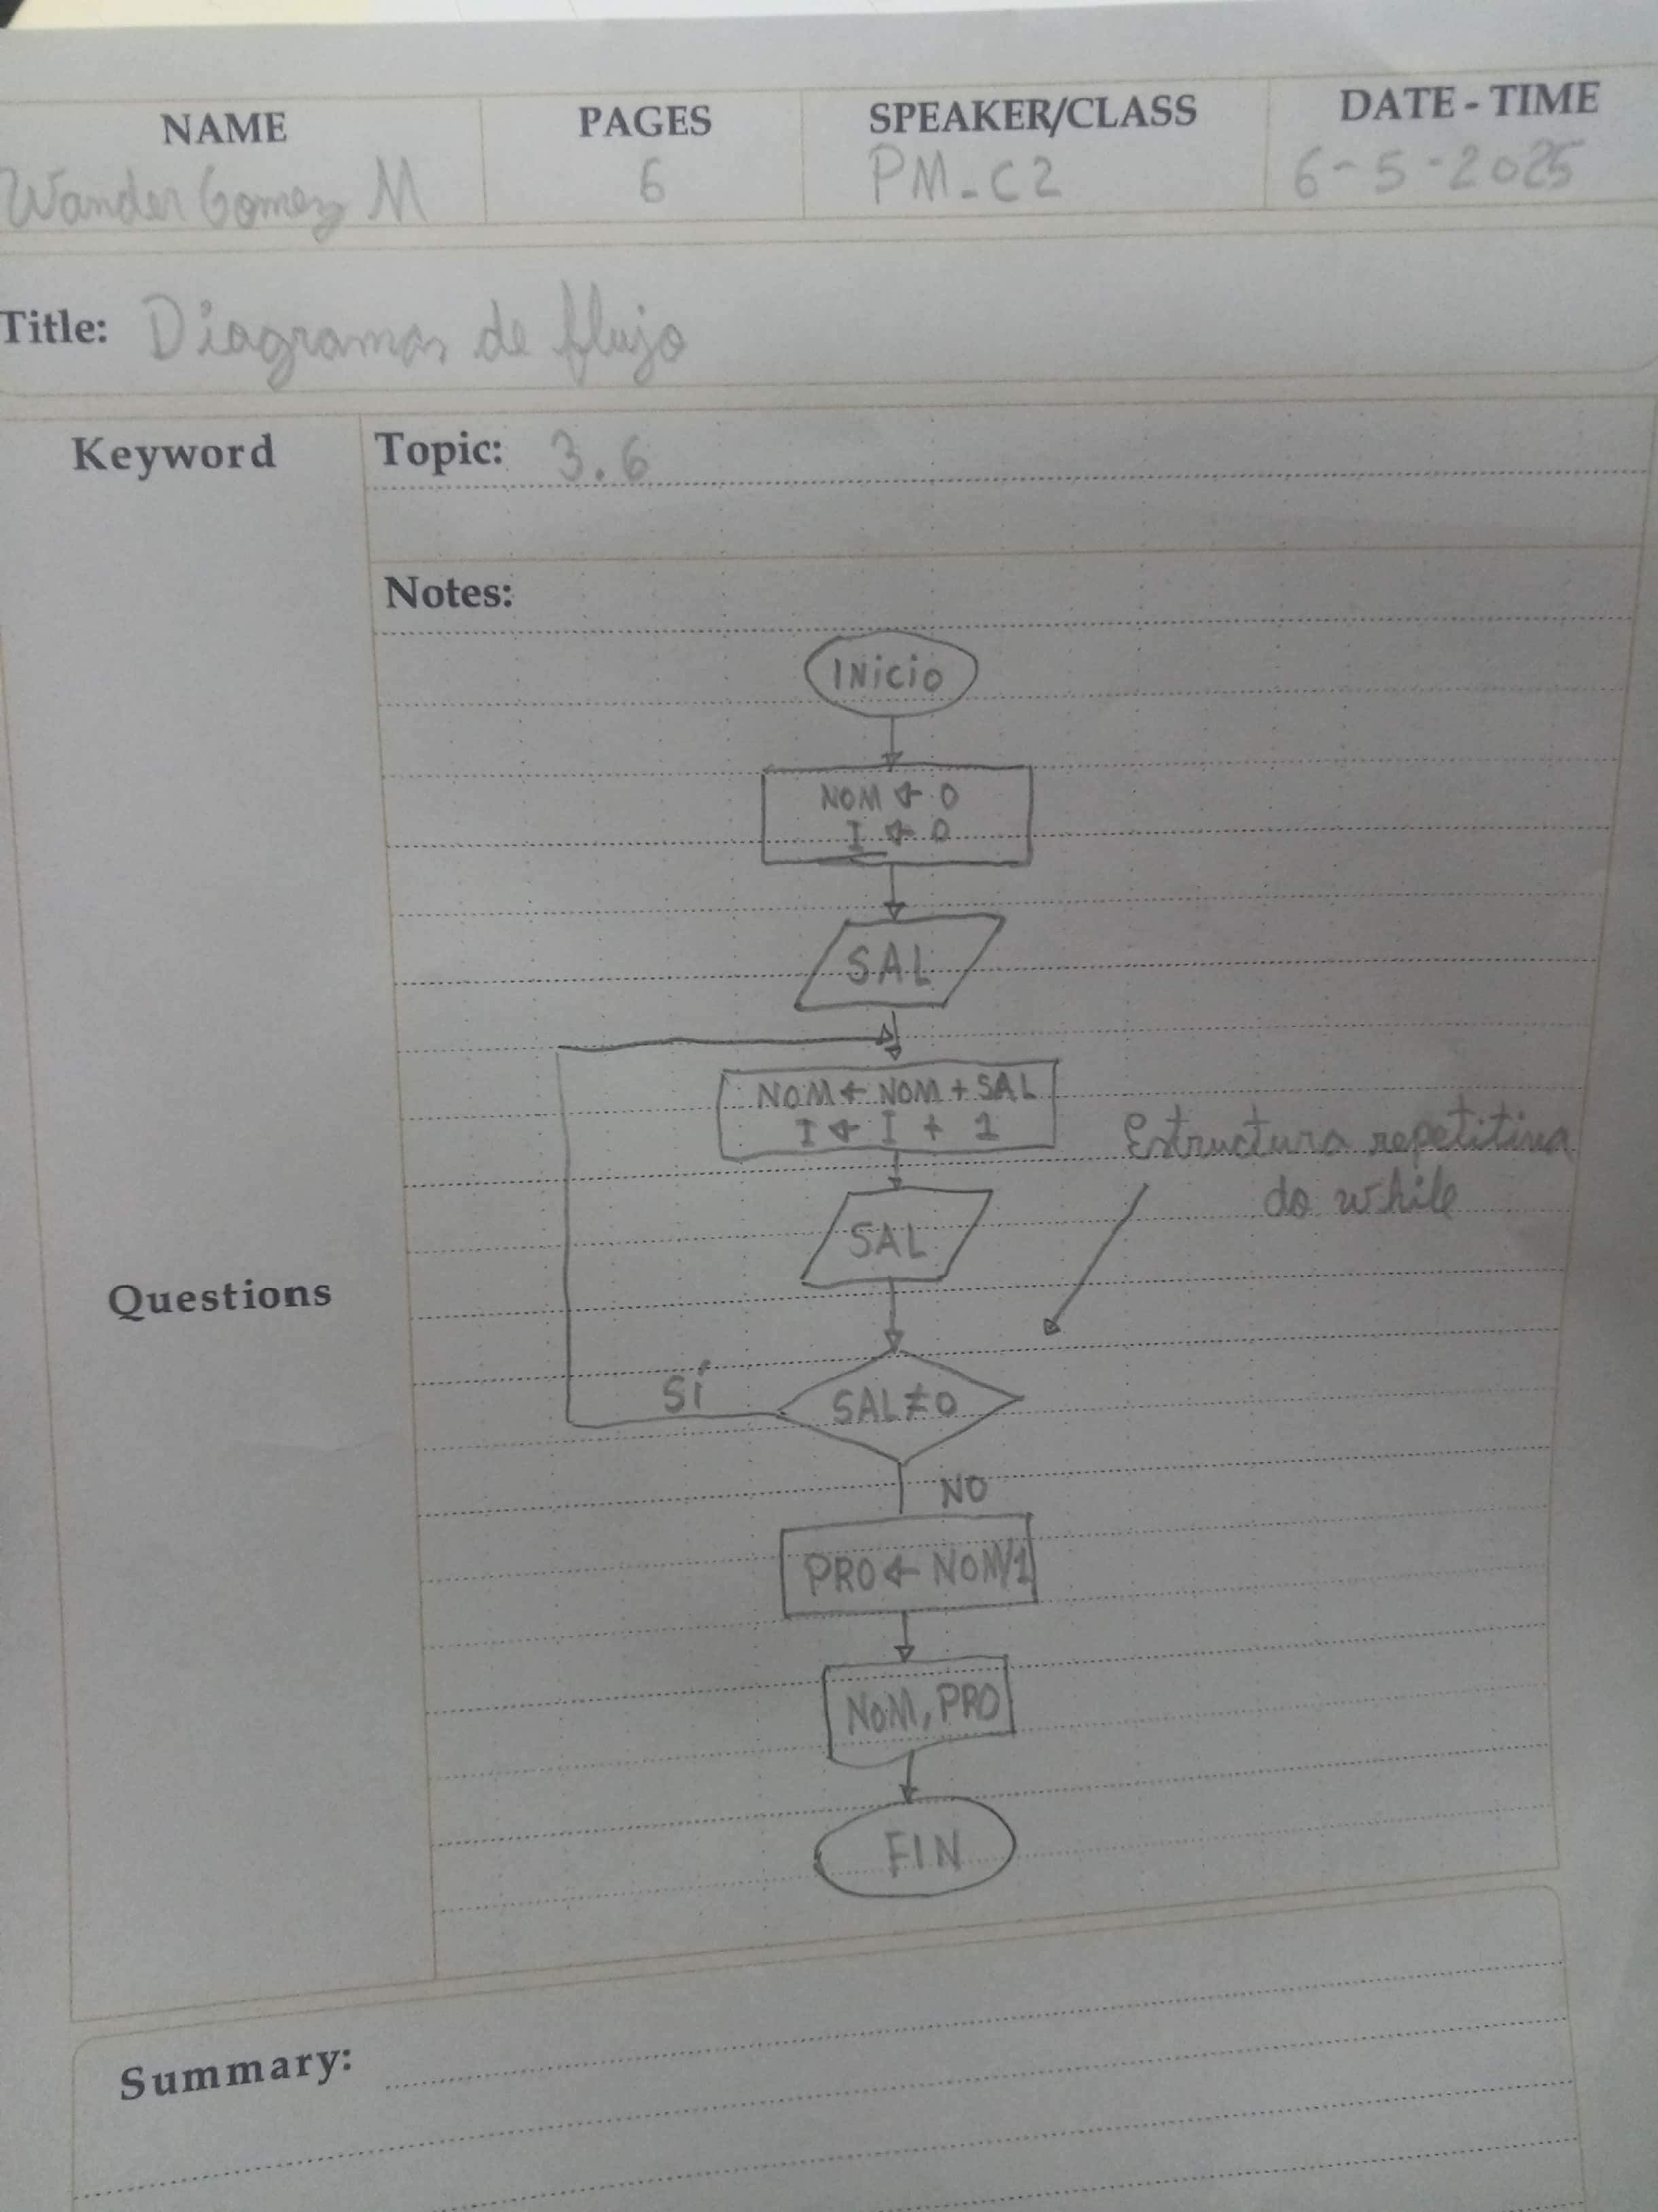 NAME PAGES SPEAKER/CLASS DATE - TIME
Wander Gomez M 6 PM-C2 6-5-2025
Title: Diagramas de flujo
Keyword Topic: 3.6
Notes:
INicio
NOM ← 0
I ← 0
SAL
NOM ← NOM + SAL
I ← I + 1
Estructura repetitiva
do while
SAL
Questions
SÍ SAL≠0
NO
PRO ← NOM/1
NOM, PRO
FIN
Summary: